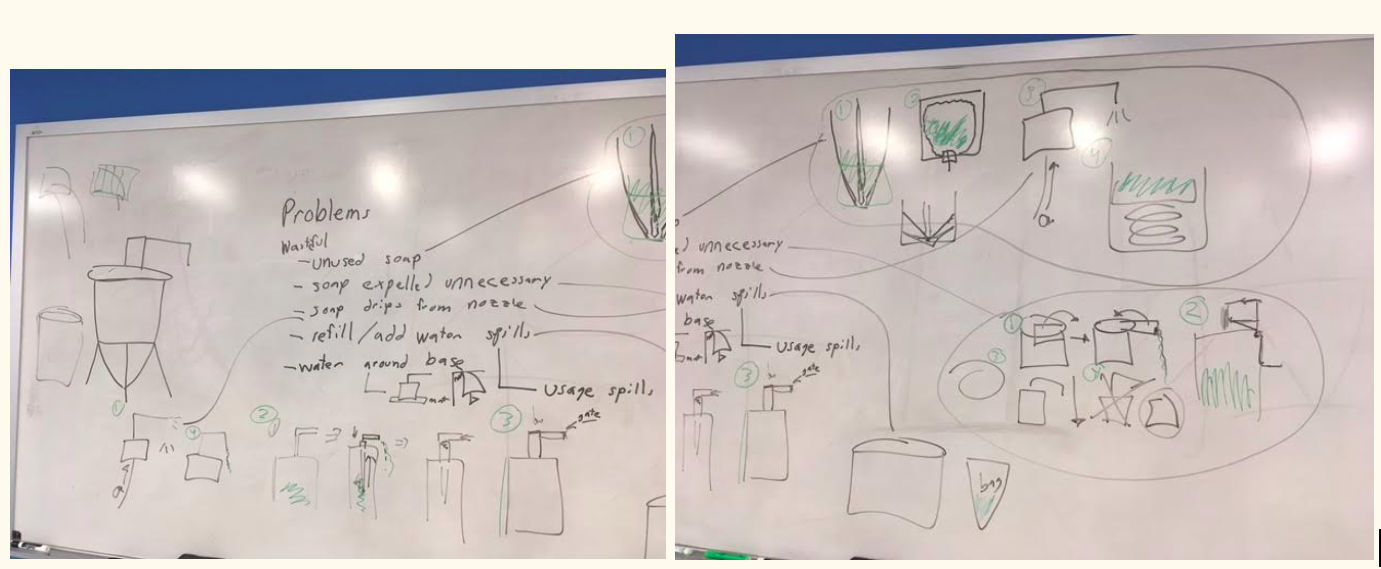 Problems
Wastful
- unused soap
- soap expelled unnecessary
- soap drips from nozzle
- refill / add water spills
- water around base
Usage spills
gate
1
2
3
1
1
2
3
4
unnecessary
from nozzle
water spills
base
Usage spills
3
gate
1
2
3
bag